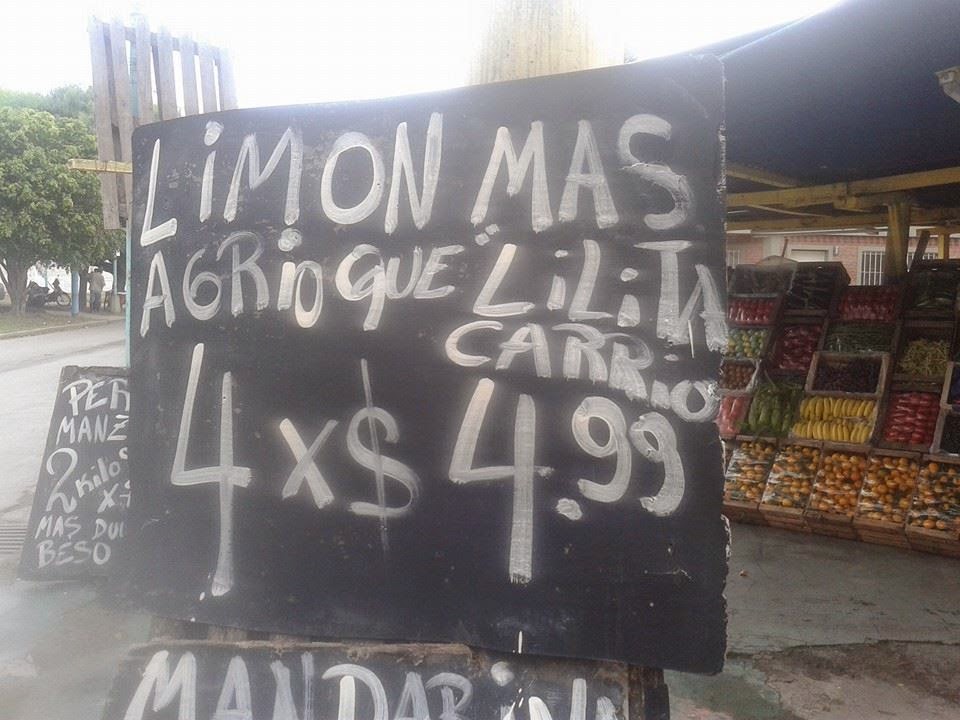 LiMON MAS
AGRiO QUE LiLiTA
CARRiO
4 x $ 4.99
PER
MANZ
2 kilos
MAS DUL
BESO
MANDARiN